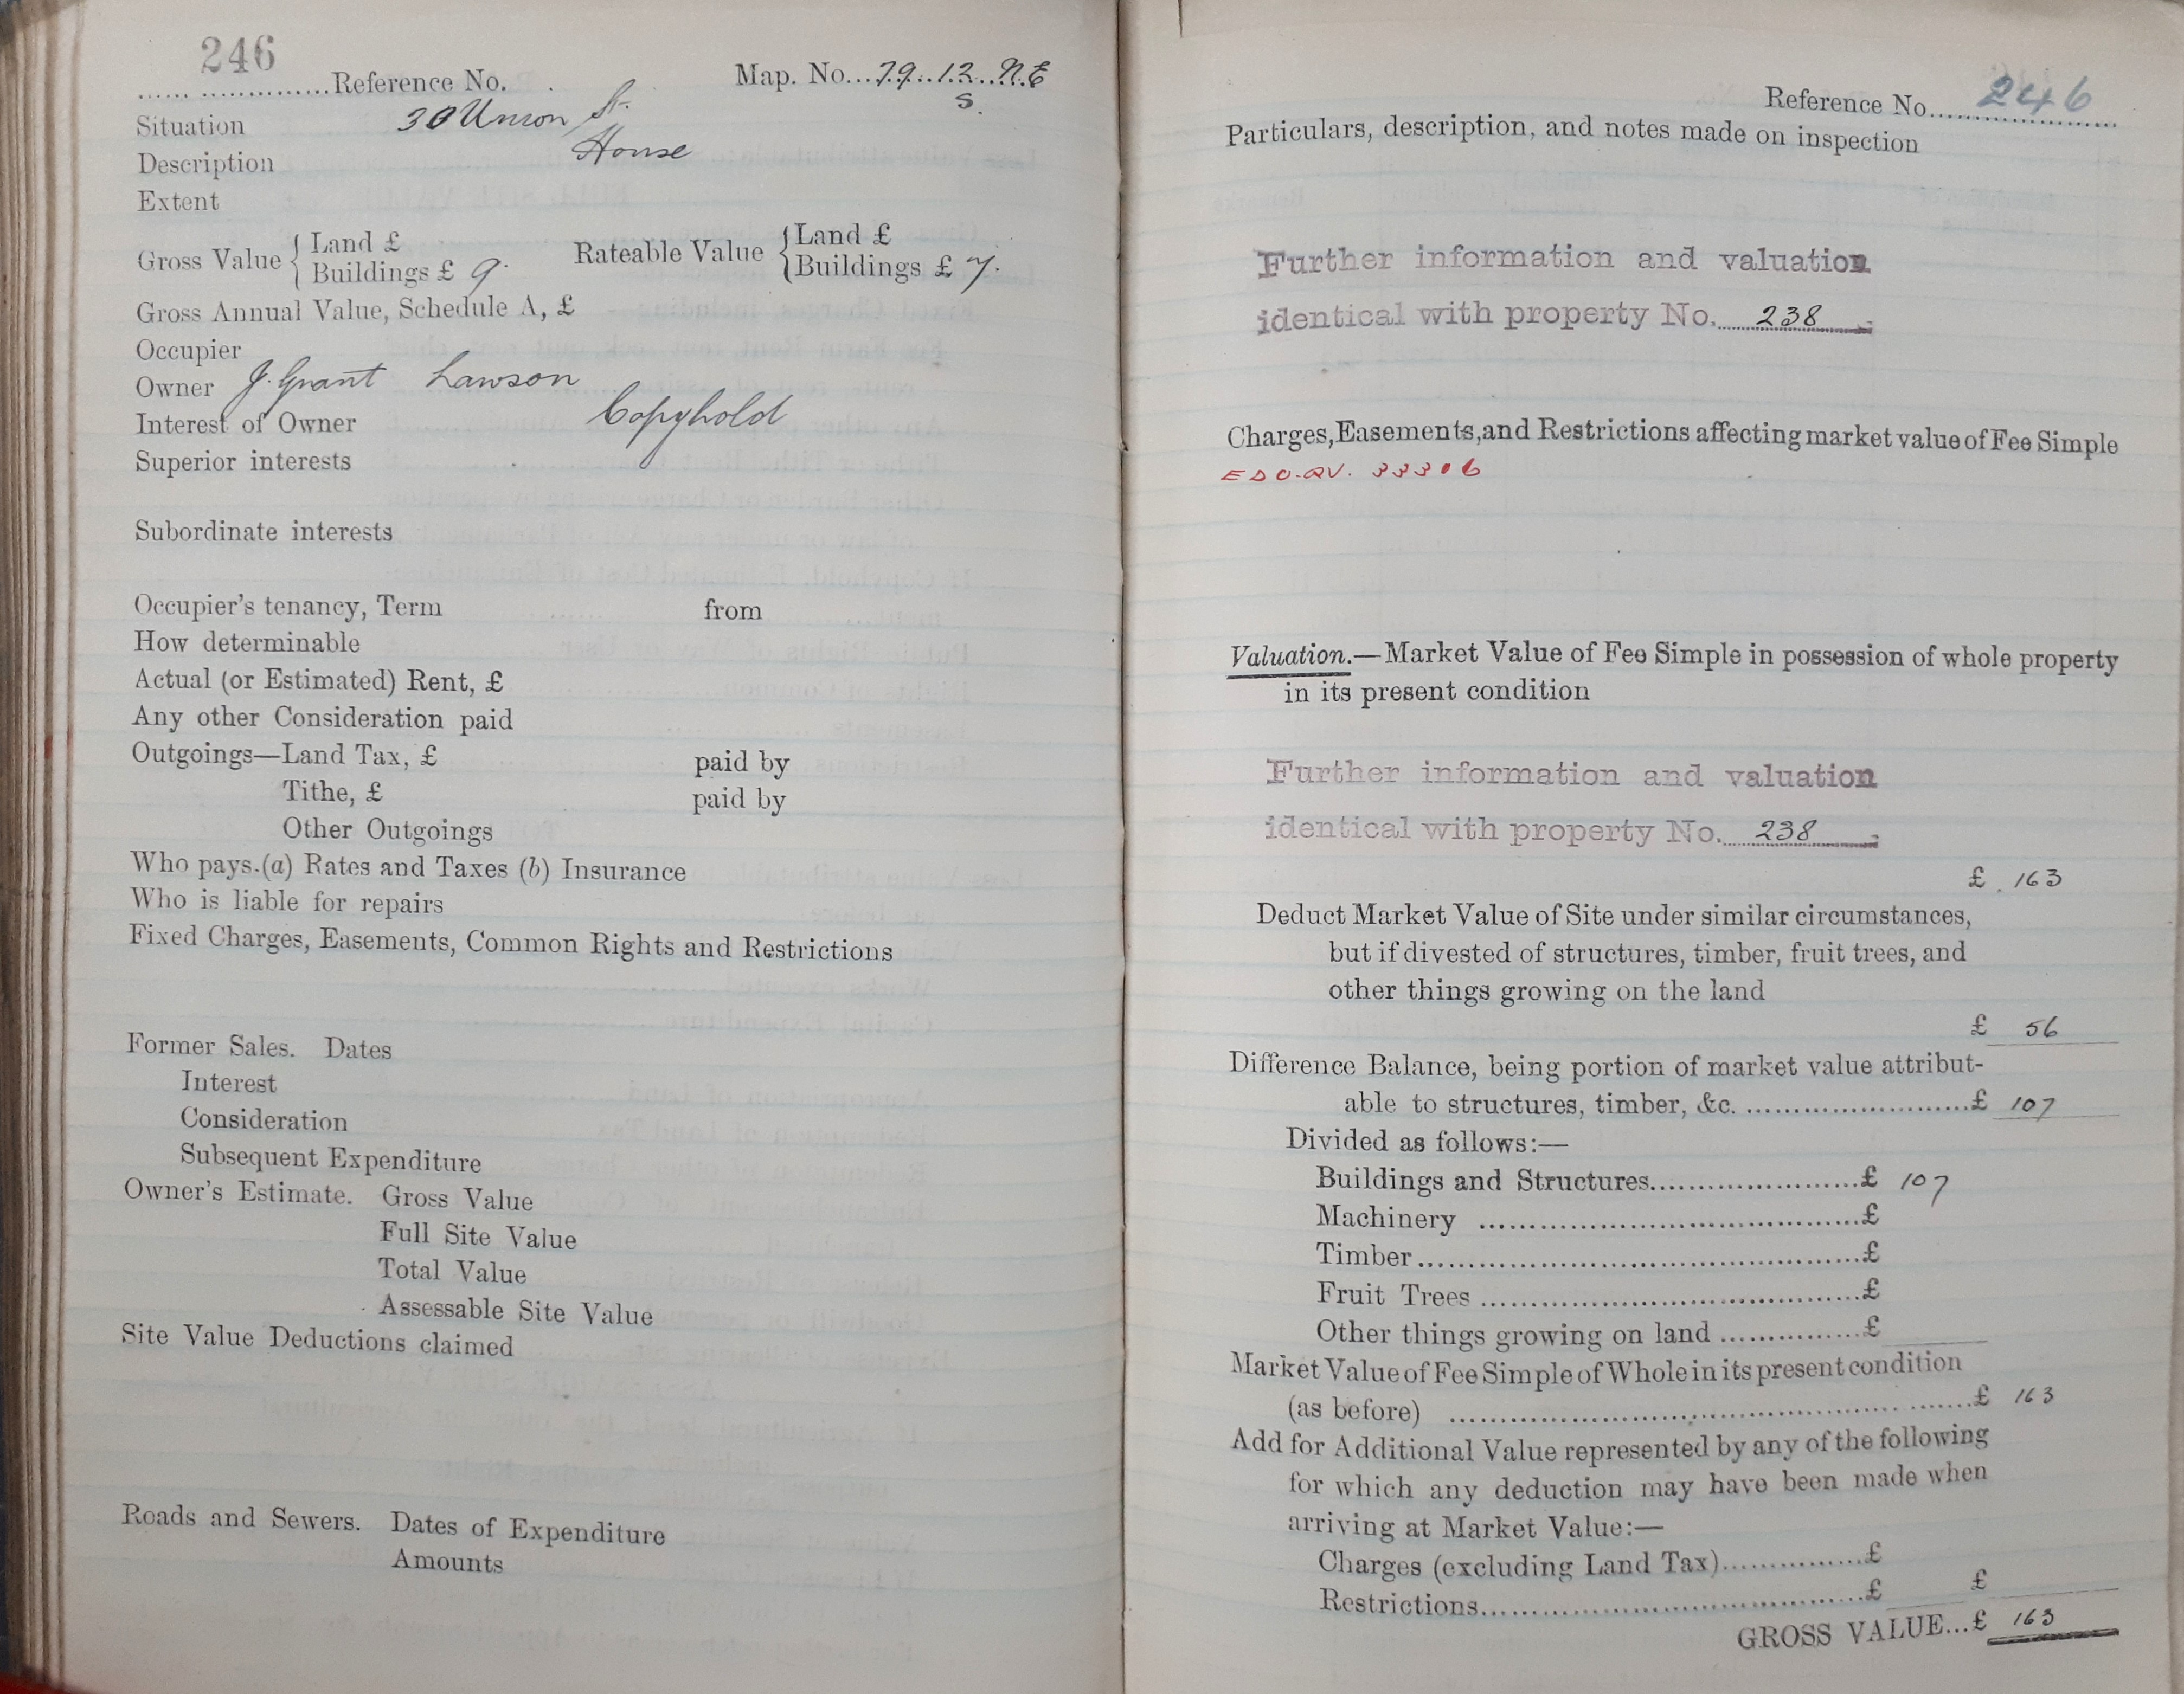 246
...... ..............Reference No. Map. No...79..12..N.E
S.
Situation 30 Union St.
Description House
Extent
Gross Value { Land £ Rateable Value { Land £
Buildings £ 9. Buildings £ 7.
Gross Annual Value, Schedule A, £
Occupier
Owner J. Grant Lawson
Interest of Owner Copyhold
Superior interests
Subordinate interests
Occupier's tenancy, Term from
How determinable
Actual (or Estimated) Rent, £
Any other Consideration paid
Outgoings—Land Tax, £ paid by
Tithe, £ paid by
Other Outgoings
Who pays.(a) Rates and Taxes (b) Insurance
Who is liable for repairs
Fixed Charges, Easements, Common Rights and Restrictions
Former Sales. Dates
Interest
Consideration
Subsequent Expenditure
Owner's Estimate. Gross Value
Full Site Value
Total Value
Assessable Site Value
Site Value Deductions claimed
Roads and Sewers. Dates of Expenditure
Amounts
Reference No. 246
Particulars, description, and notes made on inspection
Further information and valuation
identical with property No. 238
Charges, Easements, and Restrictions affecting market value of Fee Simple
33306
Valuation.—Market Value of Fee Simple in possession of whole property
in its present condition
Further information and valuation
identical with property No. 238
£ 163
Deduct Market Value of Site under similar circumstances,
but if divested of structures, timber, fruit trees, and
other things growing on the land
£ 56
Difference Balance, being portion of market value attribut-
able to structures, timber, &c. ........................£ 107
Divided as follows:—
Buildings and Structures......................£ 107
Machinery ........................................£
Timber..............................................£
Fruit Trees .......................................£
Other things growing on land ...............£
Market Value of Fee Simple of Whole in its present condition
(as before) ........................................................£ 163
Add for Additional Value represented by any of the following
for which any deduction may have been made when
arriving at Market Value:—
Charges (excluding Land Tax)...............£
Restrictions........................................£ £
GROSS VALUE...£ 163